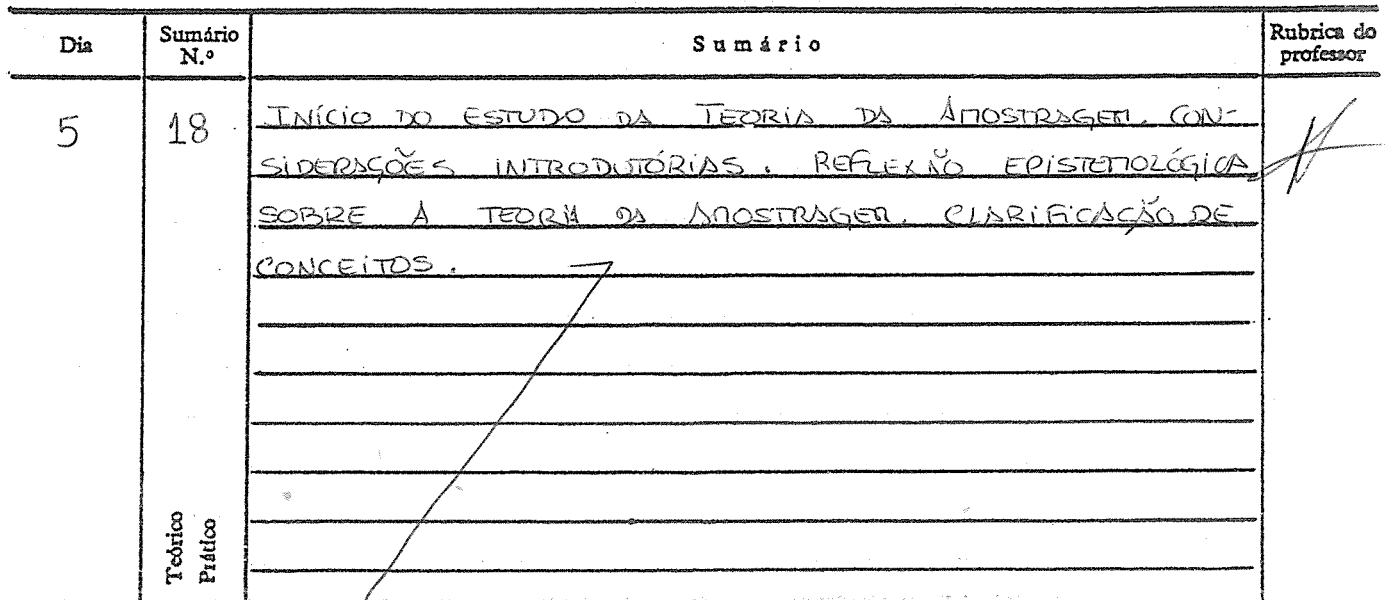 Dia
Sumário N.º
Sumário
Rubrica do professor
5
18
INÍCIO DO ESTUDO DA TEORIA DA AMOSTRAGEM. CON-
SIDERAÇÕES INTRODUTÓRIAS. REFLEXÃO EPISTEMOLÓGICA
SOBRE A TEORIA DA AMOSTRAGEM. CLARIFICAÇÃO DE
CONCEITOS.
Teórico
Prático